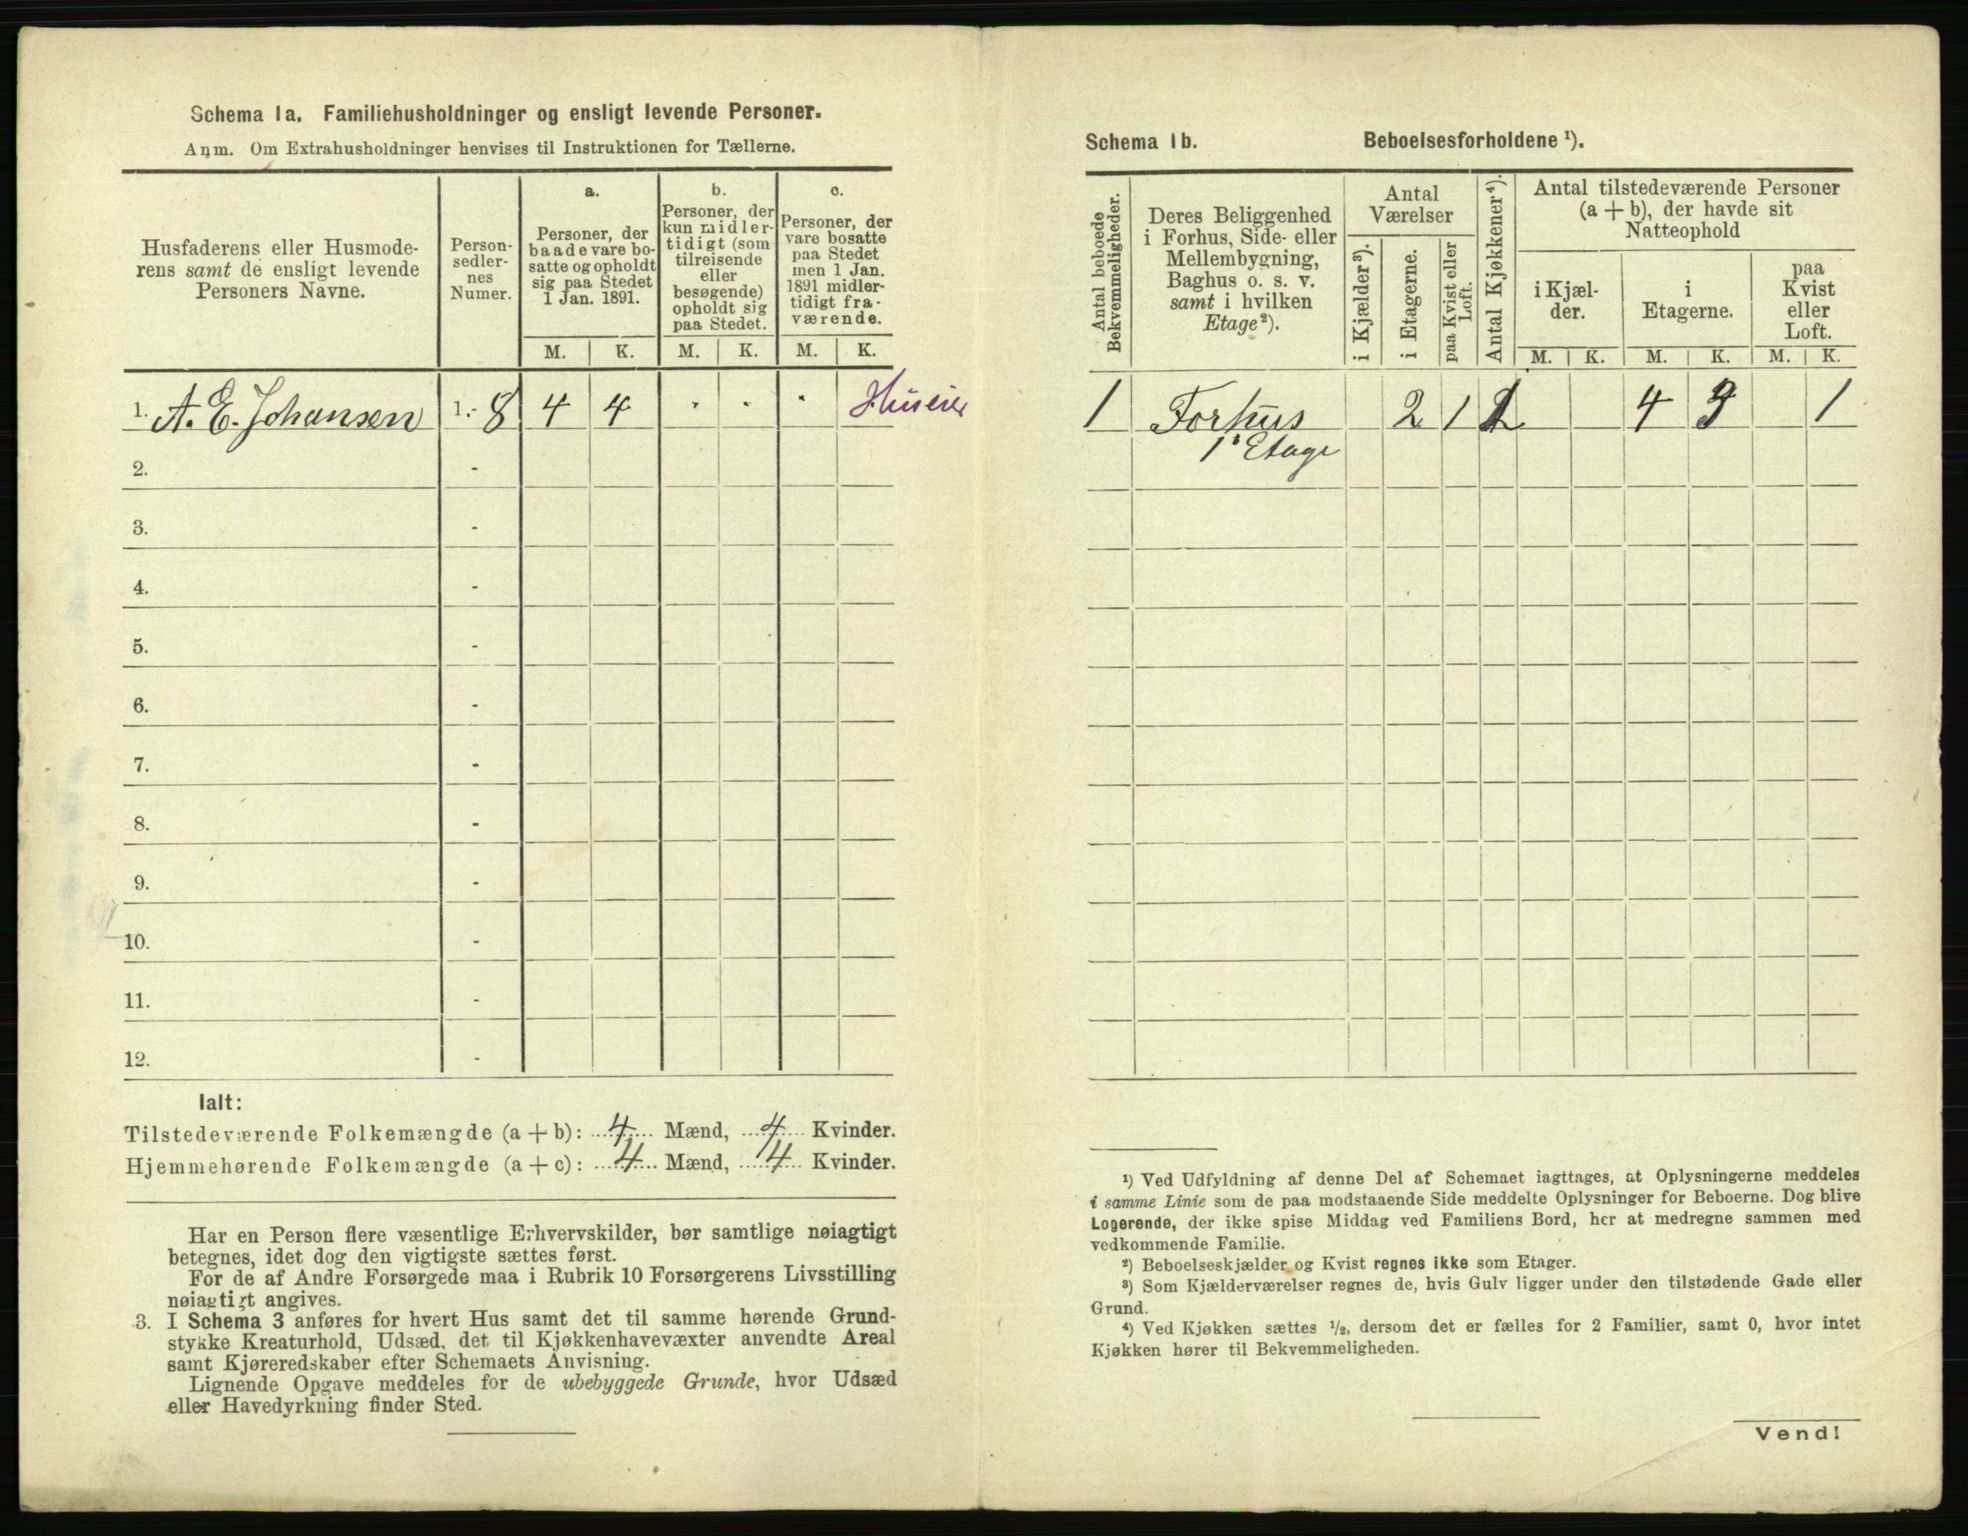 Schema 1a. Familiehusholdninger og ensligt levende Personer.
Anm. Om Extrahusholdninger henvises til Instruktionen for Tællerne.
Husfaderens eller Husmode-
rens samt de ensligt levende
Personers Navne.
Person-
sedler-
nes
Numer.
a.
Personer, der
baade vare bo-
satte og opholdt
sig paa Stedet
1 Jan. 1891.
b.
Personer, der
kun midler-
tidigt (som
tilreisende
eller
besøgende)
opholdt sig
paa Stedet.
c.
Personer, der
vare bosatte
paa Stedet
men 1 Jan.
1891 midler-
tidigt fra-
værende.
M. K. M. K. M. K.
1. A. E. Johansen 1.- 8 4 4 " " " Huseier
2. -
3. -
4. -
5. -
6. -
7. -
8. -
9. -
10. -
11. -
12. -
Ialt:
Tilstedeværende Folkemængde (a + b): 4 Mænd, 4 Kvinder.
Hjemmehørende Folkemængde (a + c): 4 Mænd, 4 Kvinder.
Har en Person flere væsentlige Erhvervskilder, bør samtlige nøiagtigt
betegnes, idet dog den vigtigste sættes først.
For de af Andre Forsørgede maa i Rubrik 10 Forsørgerens Livsstilling
nøiagtigt angives.
3. I Schema 3 anføres for hvert Hus samt det til samme hørende Grund-
stykke Kreaturhold, Udsæd, det til Kjøkkenhavevæxter anvendte Areal
samt Kjøreredskaber efter Schemaets Anvisning.
Lignende Opgave meddeles for de ubebyggede Grunde, hvor Udsæd
eller Havedyrkning finder Sted.
Schema 1b. Beboelsesforholdene ¹).
Antal beboede
Bekvemmeligheder.
Deres Beliggenhed
i Forhus, Side- eller
Mellembygning,
Baghus o. s. v.
samt i hvilken
Etage²).
Antal
Værelser
i Kjælder³).
i Etagerne.
paa Kvist eller
Loft.
Antal Kjøkkener⁴).
Antal tilstedeværende Personer
(a + b), der havde sit
Natteophold
i Kjæl-
der.
i
Etagerne.
paa
Kvist
eller
Loft.
M. K. M. K. M. K.
1 Forhus 2 1 1 4 3 1
1ˢ Etage
¹) Ved Udfyldning af denne Del af Schemaet iagttages, at Oplysningerne meddeles
i samme Linie som de paa modstaaende Side meddelte Oplysninger for Beboerne. Dog blive
Logerende, der ikke spise Middag ved Familiens Bord, her at medregne sammen med
vedkommende Familie.
²) Beboelseskjælder og Kvist regnes ikke som Etager.
³) Som Kjælderværelser regnes de, hvis Gulv ligger under den tilstødende Gade eller
Grund.
⁴) Ved Kjøkken sættes ½, dersom det er fælles for 2 Familier, samt 0, hvor intet
Kjøkken hører til Bekvemmeligheden.
Vend!